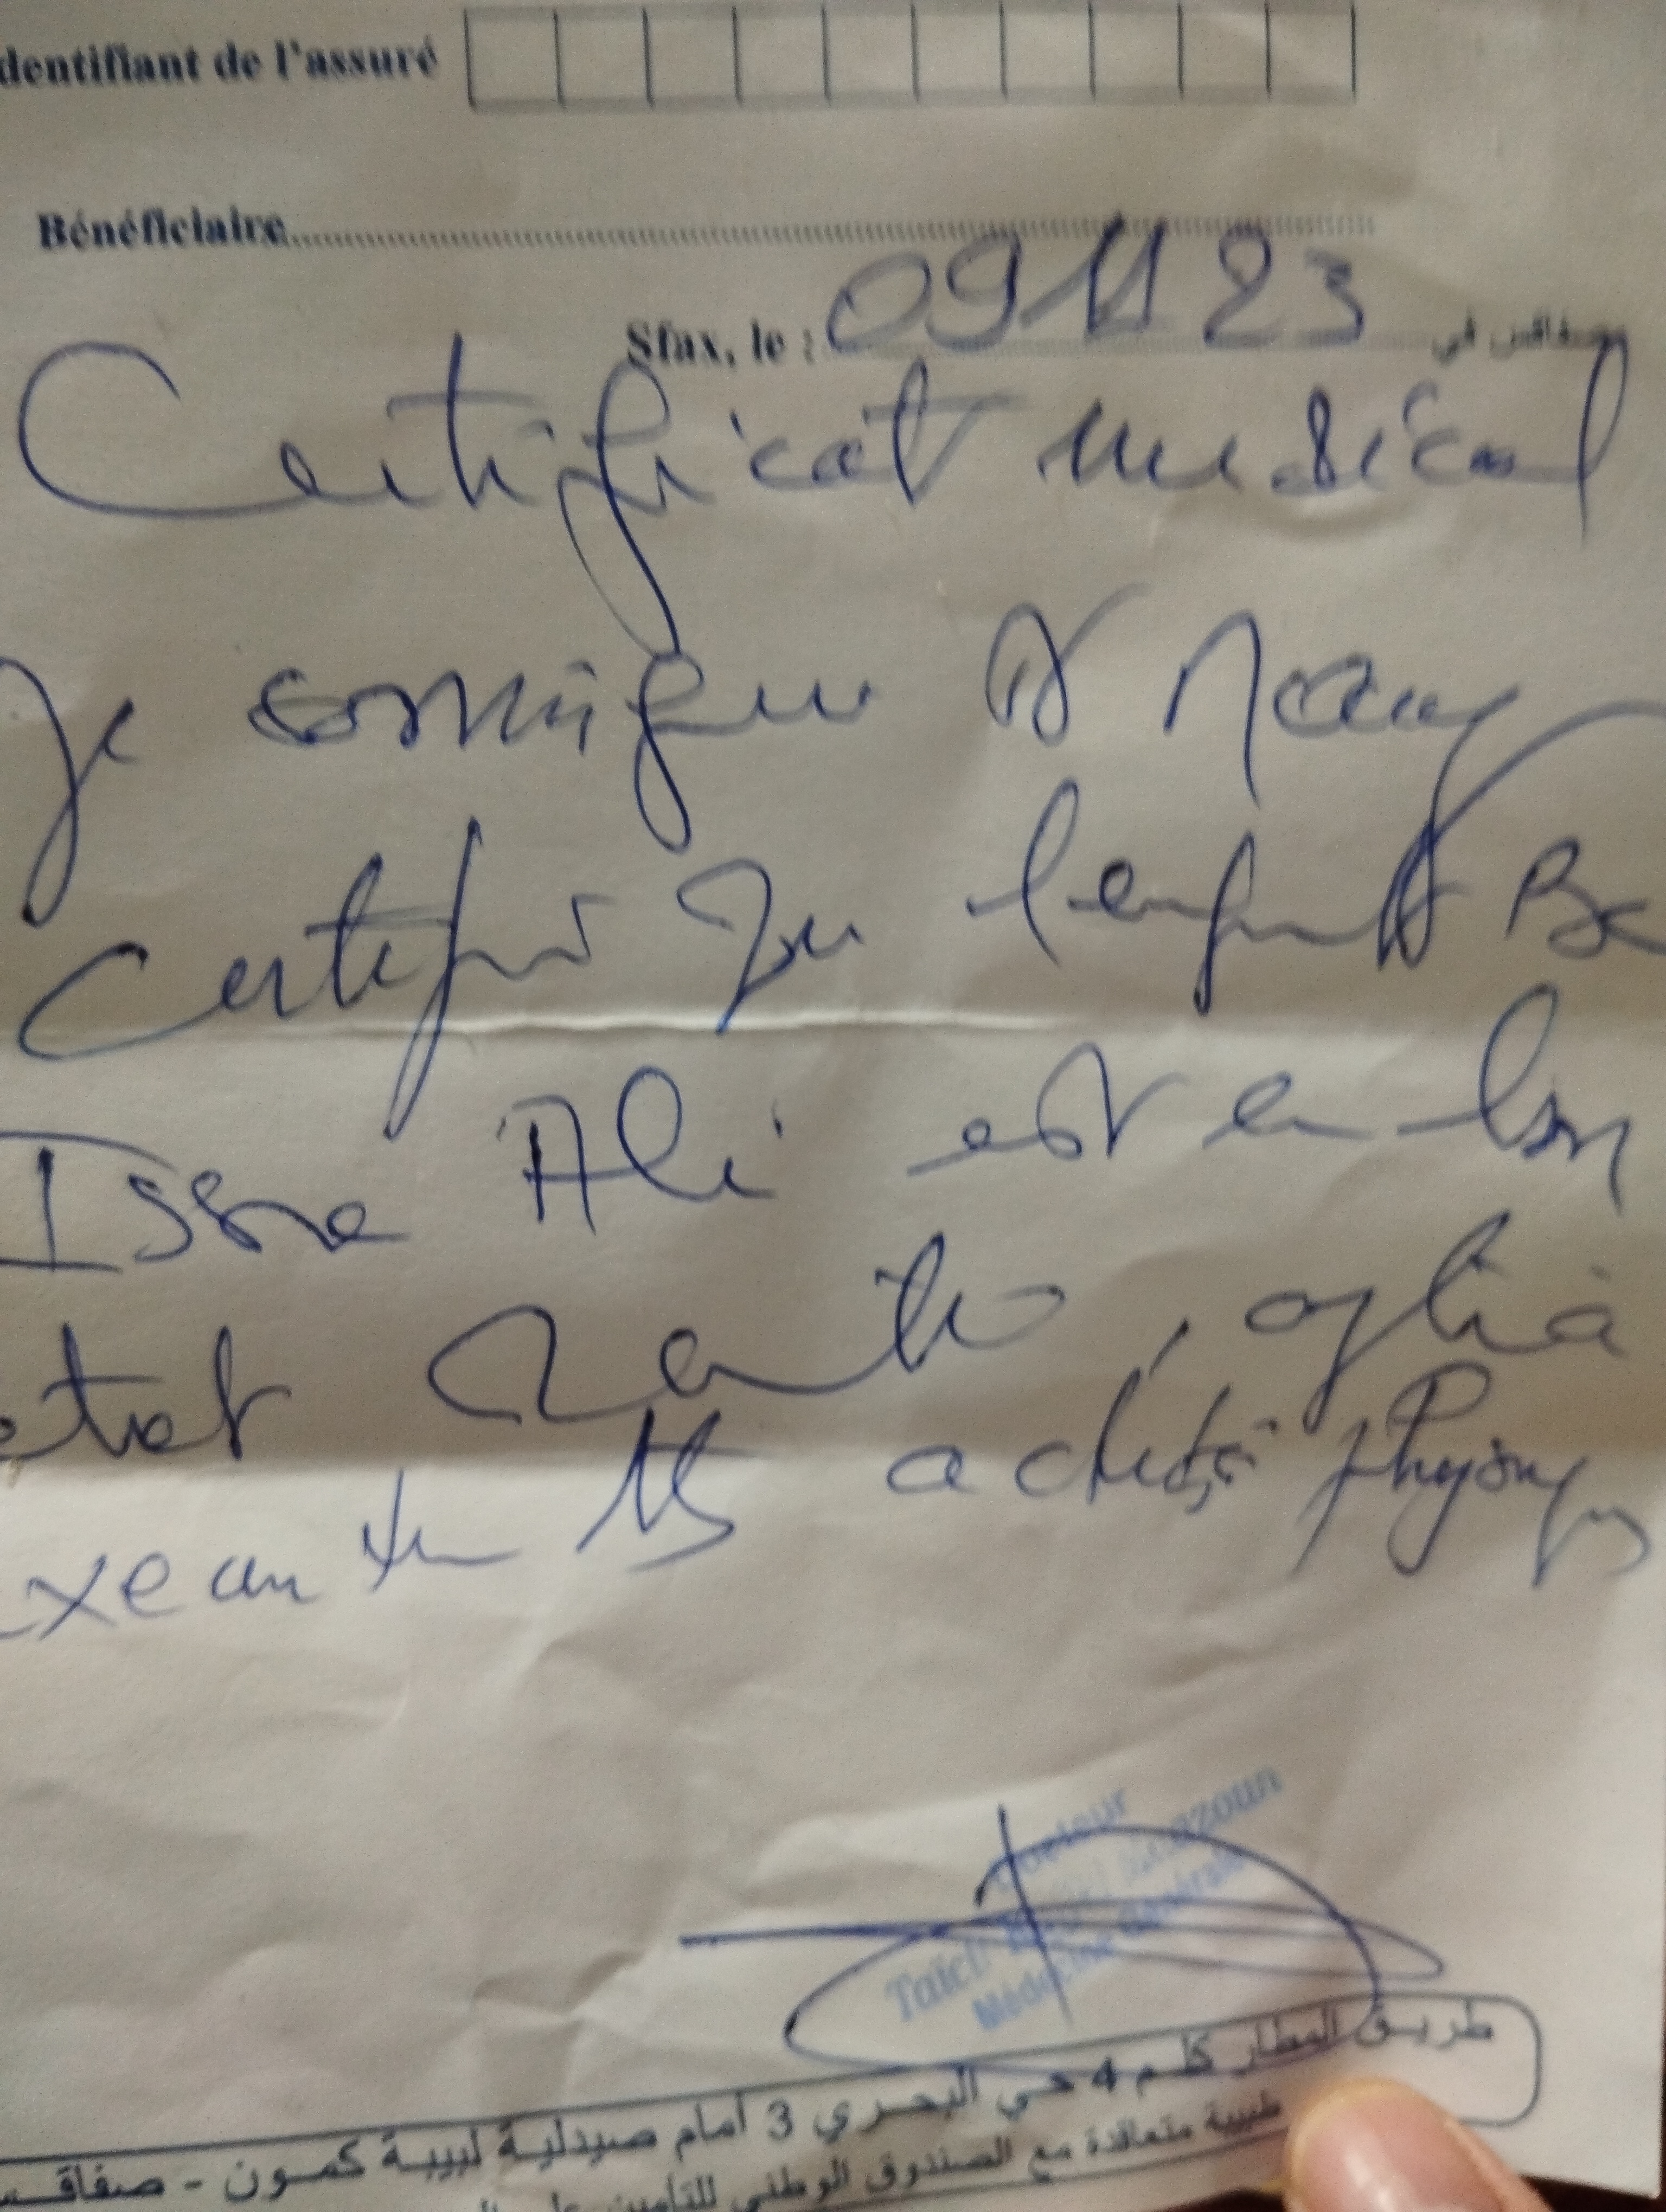 dentifiant de l'assuré
Bénéficiaire
Sfax, le : 09 11 23 صفاقس في
Certificat medical
Je soussigné Dr
certifie que l'enfant Be
Issa Ali est en bon
etat santé, apte à
exeant activité physique
Docteur
Médecine Générale
طريق المطار كلم 4 حي البحري 3 أمام صيدلية لبيبة كمون - صفاقس
طبيبة متعاقدة مع الصندوق الوطني للتأمين على